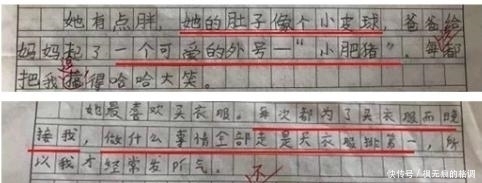 她有点胖，她的肚子像个小皮球，爸爸给
妈妈起了一个可爱的外号—“小肥猪”，每都
把我逗得哈哈大笑。
她最喜欢买衣服。每次都为了买衣服而晚
接我，做什么事情全部走是买衣服排第一，所
以我才经常发吖气。
不
快传号/枫无痕的格调